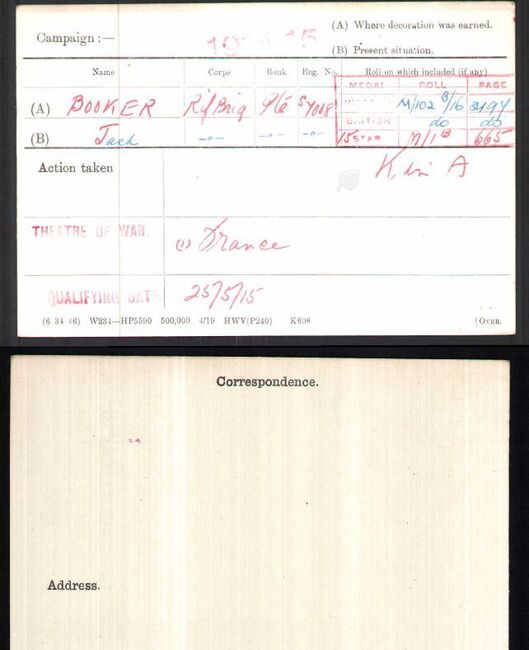 (A) Where decoration was earned.
Campaign :— 1914-15
(B) Present situation.
Name Corps Rank Reg. No. Roll on which included (if any)
MEDAL ROLL PAGE
(A) BOOKER Rif Brig Pte S/7008 M/102 B/16 2194
BRITISH do do
(B) Jack —"— —"— —"— 15 STAR M/1 B 665
Action taken K in A
THEATRE OF WAR. (1) France
QUALIFYING DATE 25/5/15
(6 34 46) W234—HP5590 500,000 4/19 HWV(P240) K608 [OVER.
Correspondence.
Address.